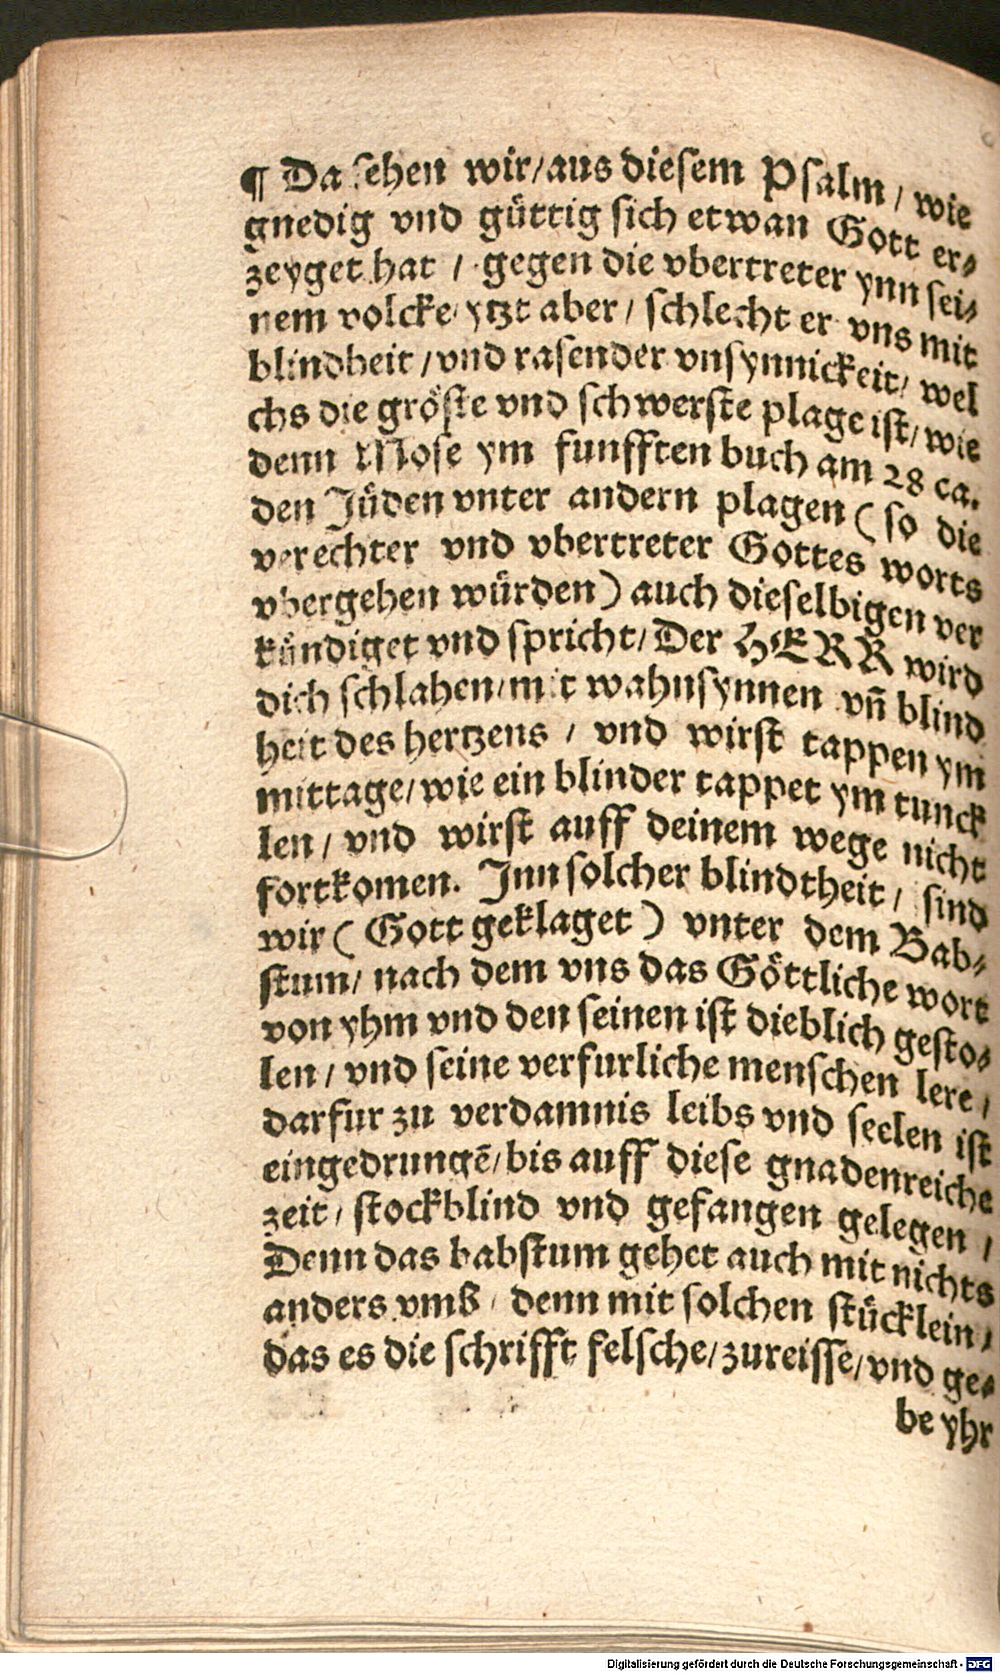 ¶ Da sehen wir/ aus diesem Psalm / wie
gnedig vnd güttig sich etwan Gott er⸗
zeyget hat / gegen die vbertreter ynn sei⸗
nem volcke/ ytzt aber / schlecht er vns mit
blindheit / vnd rasender vnsynnickeit/ wel
chs die gröste vnd schwerste plage ist/ wie
denn Mose ym funfften buch am 28 ca.
den Jüden vnter andern plagen ( so die
verechter vnd vbertreter Gottes worts
vbergehen würden ) auch dieselbigen ver
kündiget vnd spricht/ Der HERR wird
dich schlahen/ mit wahnsynnen vñ blind
heit des hertzens / vnd wirst tappen ym
mittage/ wie ein blinder tappet ym tunck
len / vnd wirst auff deinem wege nicht
fortkomen. Jnn solcher blindtheit / sind
wir ( Gott geklaget ) vnter dem Bab⸗
stum/ nach dem vns das Göttliche wort
von yhm vnd den seinen ist dieblich gesto⸗
len / vnd seine verfurliche menschen lere /
darfur zu verdamnis leibs vnd seelen ist
eingedrungẽ/ bis auff diese gnadenreiche
zeit / stockblind vnd gefangen gelegen /
Denn das babstum gehet auch mit nichts
anders vmß / denn mit solchen stücklein /
das es die schrifft felsche/ zureisse/ vnd ge⸗
be yhr
Digitalisierung gefördert durch die Deutsche Forschungsgemeinschaft - DFG